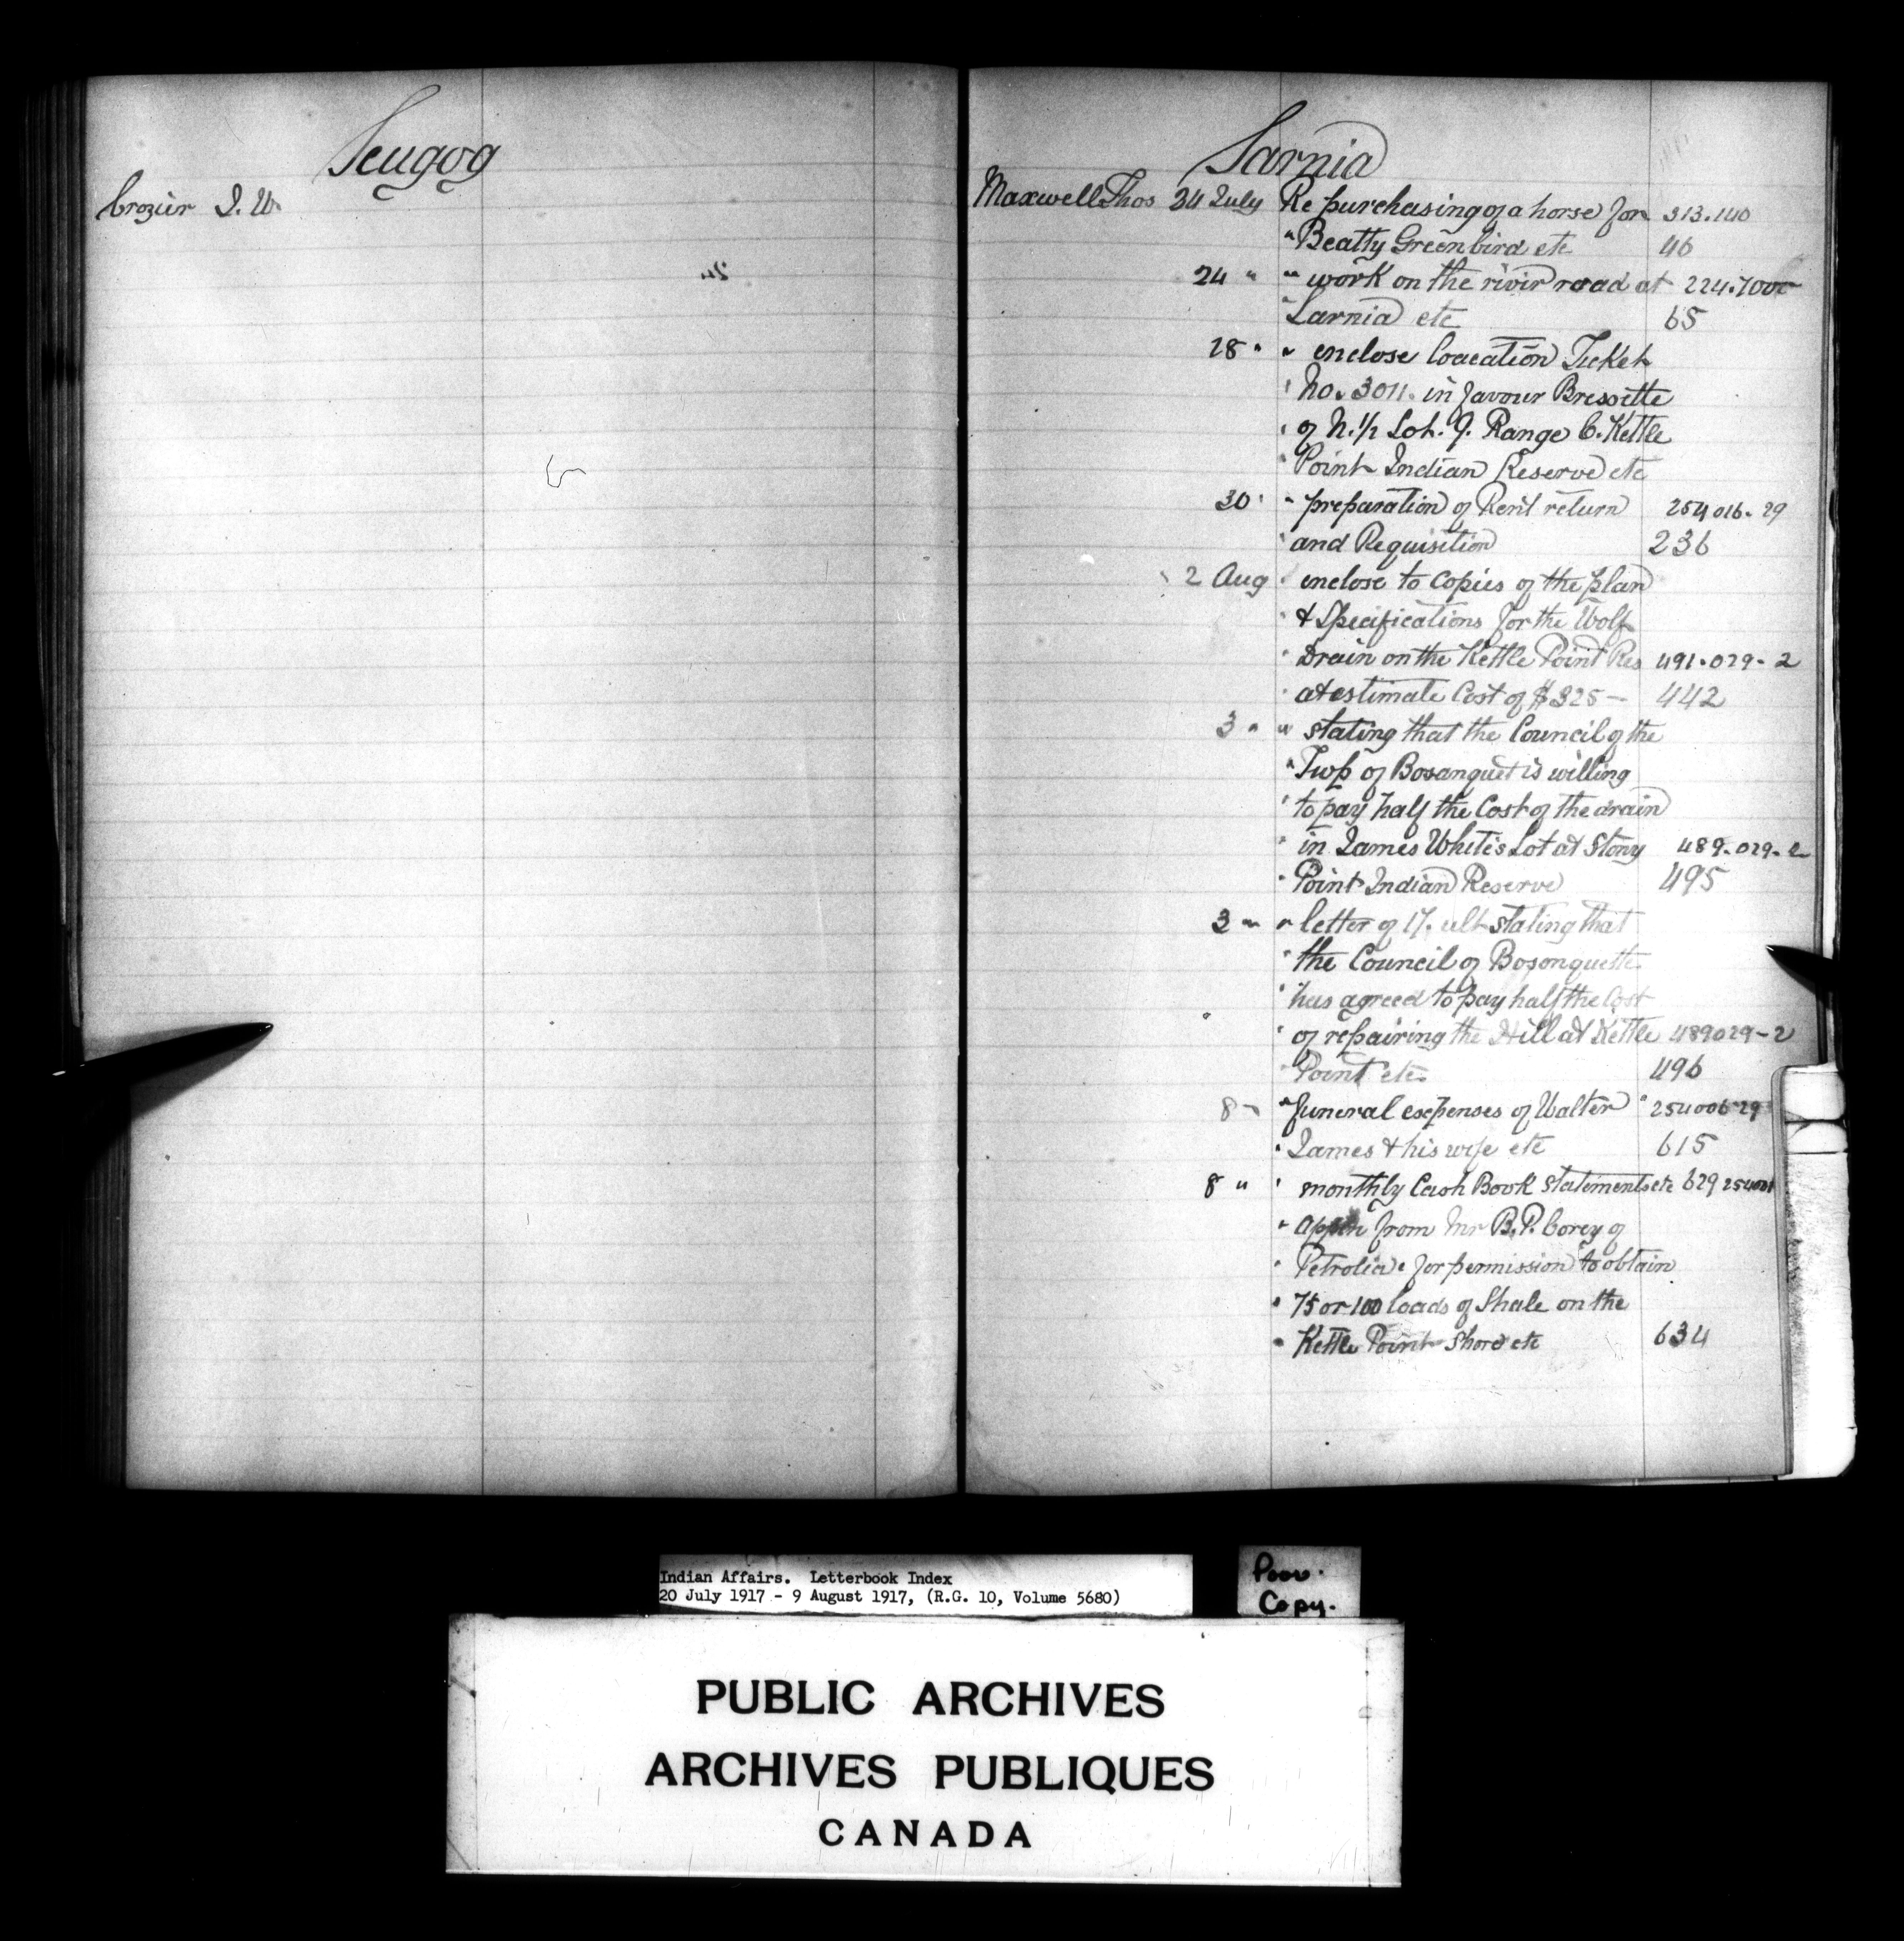 Scugog
Crozier J. W.
Sarnia
Maxwell Thos 24 July Re purchasing of a horse for 313.140
" Beatty Greenbird etc 46
24 " " work on the rivir road at 224.7000
" Sarnia etc 65
28 " " enclose Loacation Ticket
" No. 3011. in favour Bressette
" of N. 1/2 Lot. 9. Range C. Kettle
" Point Indian Reserve etc
30 " " preparation of Rent return 254016-29
" and Requisition 236
2 Aug " enclose to copies of the plan
" & Specifications for the Wolf
" Drain on the Kettle Point Res 491-029-2
" at estimate Cost of $325— 442
3 " " stating that the Council of the
" Twp of Bosanquet is willing
" to pay half the Cost of the drain
" in James White's Lot at Stony 489-029-2
" Point Indian Reserve 495
3 " " letter of 17. ult stating that
" the Council of Bosonquette
" has agreed to pay half the Cost
" of repairing the Hill at Kettle 489029-2
" Point etc. 496
8 " " funeral expenses of Walter 254006-29
" James & his wife etc 615
8 " " monthly Cash Book Statements etc 629
" from Mr B. P. Corey of
" Petrolia. for permission to obtain
" 75 or 100 loads of Shale on the
" Kettle Point Shore etc 634
Indian Affairs. Letterbook Index
20 July 1917 - 9 August 1917, (R.G. 10, Volume 5680)
Poor.
Copy.
PUBLIC ARCHIVES
ARCHIVES PUBLIQUES
CANADA